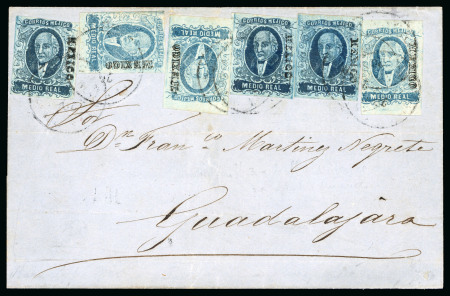 CORREOS MEJICO
MEDIO REAL
MEXICO
CORREOS MEJICO
MEDIO REAL
MEXICO
CORREOS MEJICO
MEDIO REAL
MEXICO
CORREOS MEJICO
MEDIO REAL
MEXICO
CORREOS MEJICO
MEDIO REAL
MEXICO
CORREOS MEJICO
MEDIO REAL
MEXICO
Sor
Dn. Franco. Martinez Negrete
Guadalajara